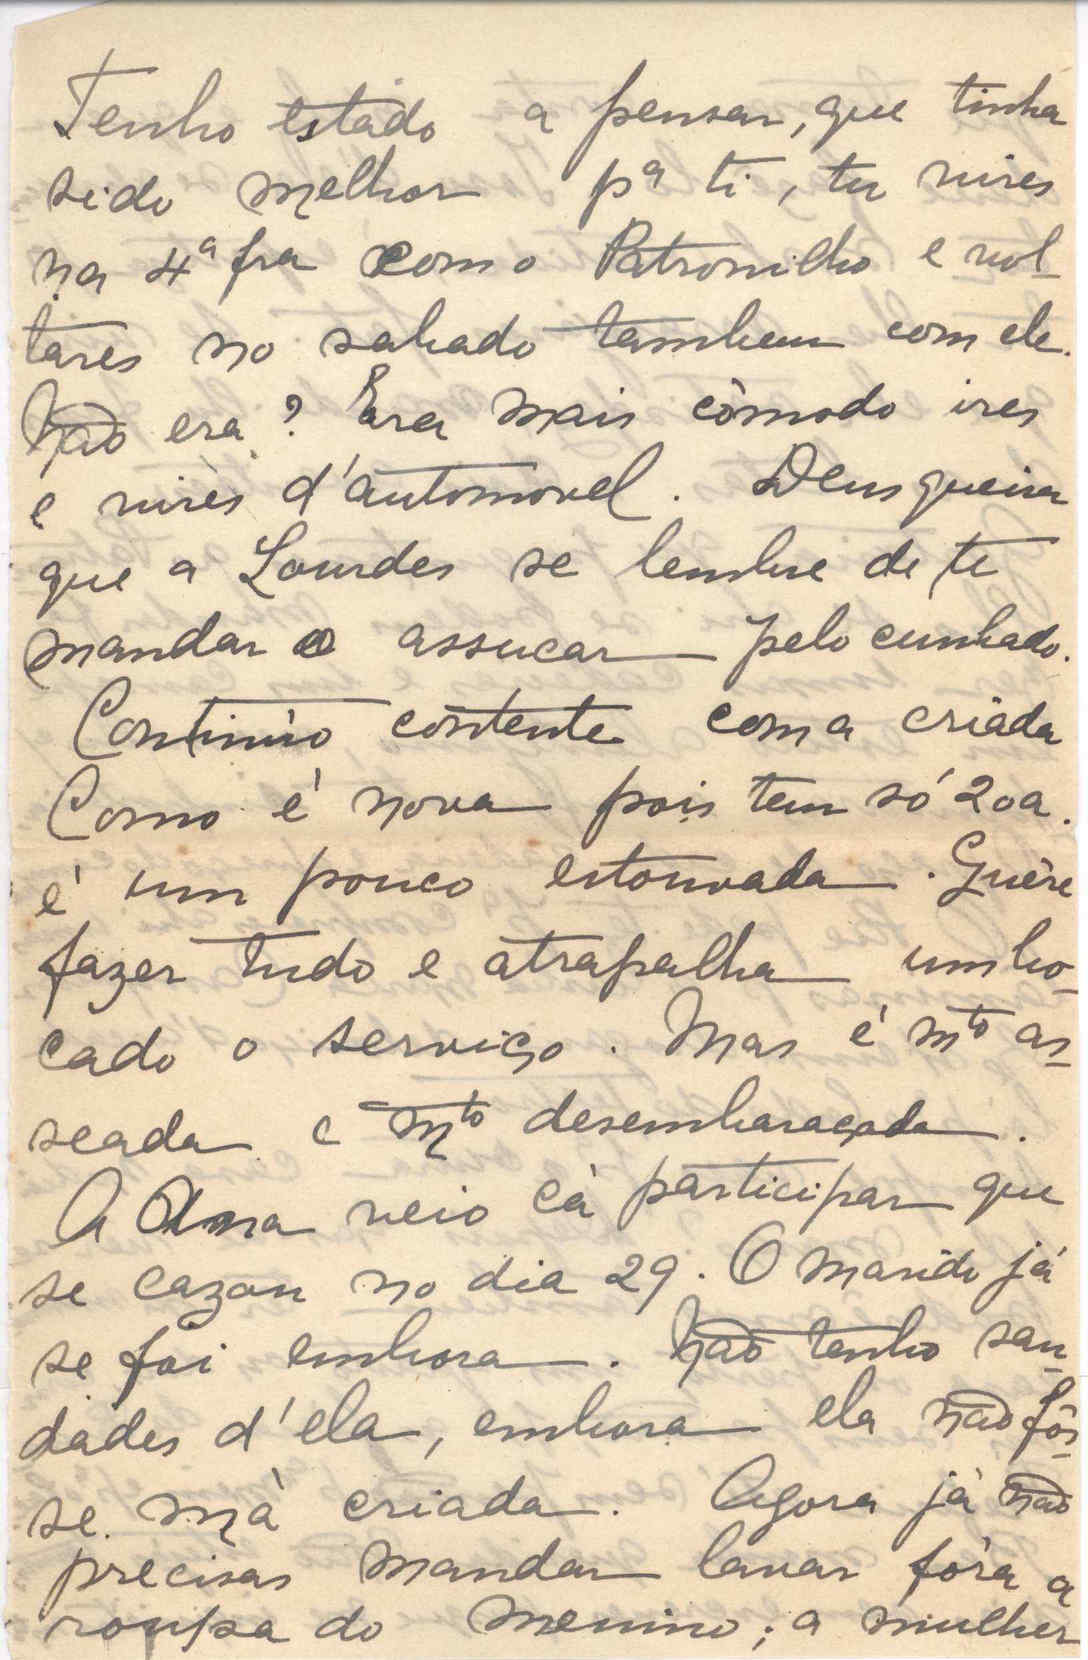 Tenho estado a pensar, que tinha
sido melhor pª ti, tu vires
na 4ª fra com o Patronilho e vol-
tares no sabado tambem com ele.
Não era? Era mais cômodo ires
e vires d'automovel. Deus queira
que a Lourdes se lembre de te
mandar o assucar pelo cunhado.
Continúo contente com a criada
Como é nova pois tem só 20 a.
é um pouco estouvada. Quére
fazer tudo e atrapalha um bo-
cado o serviço. Mas é mto as-
seada e mto desembaraçada.
A Alma veio cà participar que
se cazou no dia 29. O marido já
se foi embora. Não tenho sau-
dades d'ela, embora ela não fôs-
se mà criada. Agora já não
precisas mandar lavar fóra a
roupa do menino; a mulher